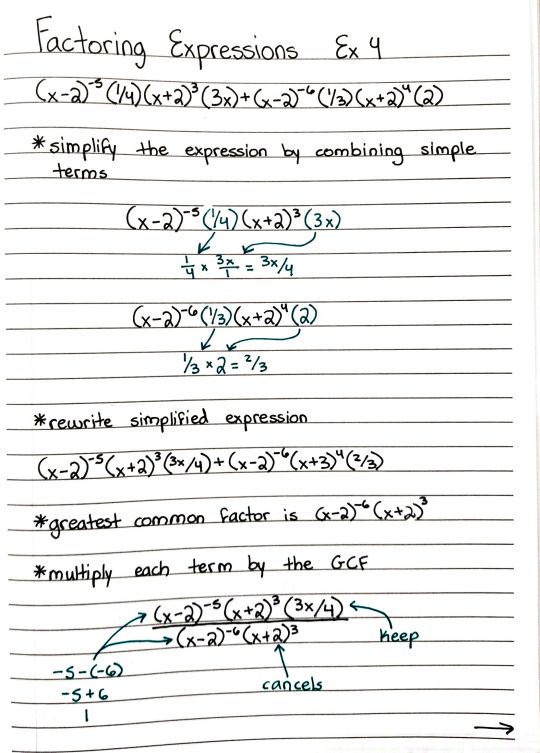 Factoring Expressions Ex 4
(x-2)⁻⁵(1/4)(x+2)³(3x)+(x-2)⁻⁶(1/3)(x+2)⁴(2)
*simplify the expression by combining simple
terms
(x-2)⁻⁵(1/4)(x+2)³(3x)
1/4 × 3x/1 = 3x/4
(x-2)⁻⁶(1/3)(x+2)⁴(2)
1/3 × 2 = 2/3
*rewrite simplified expression
(x-2)⁻⁵(x+2)³(3x/4)+(x-2)⁻⁶(x+3)⁴(2/3)
*greatest common factor is (x-2)⁻⁶(x+2)³
*multiply each term by the GCF
(x-2)⁻⁵(x+2)³(3x/4)
(x-2)⁻⁶(x+2)³
keep
-5-(-6)
cancels
-5+6
1